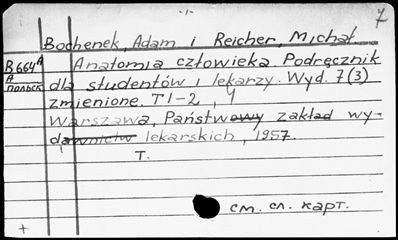 7
Bochenek, Adam i Reicher, Michał
B664A Anatomia człowieka. Podręcznik
A польск dla studentów i lekarzy. Wyd. 7(3)
zmienione. T 1-2, 4
Warszawa, Państwowy zakład wy-
dawnictw lekarskich, 1957.
T.
см. сл. карт.